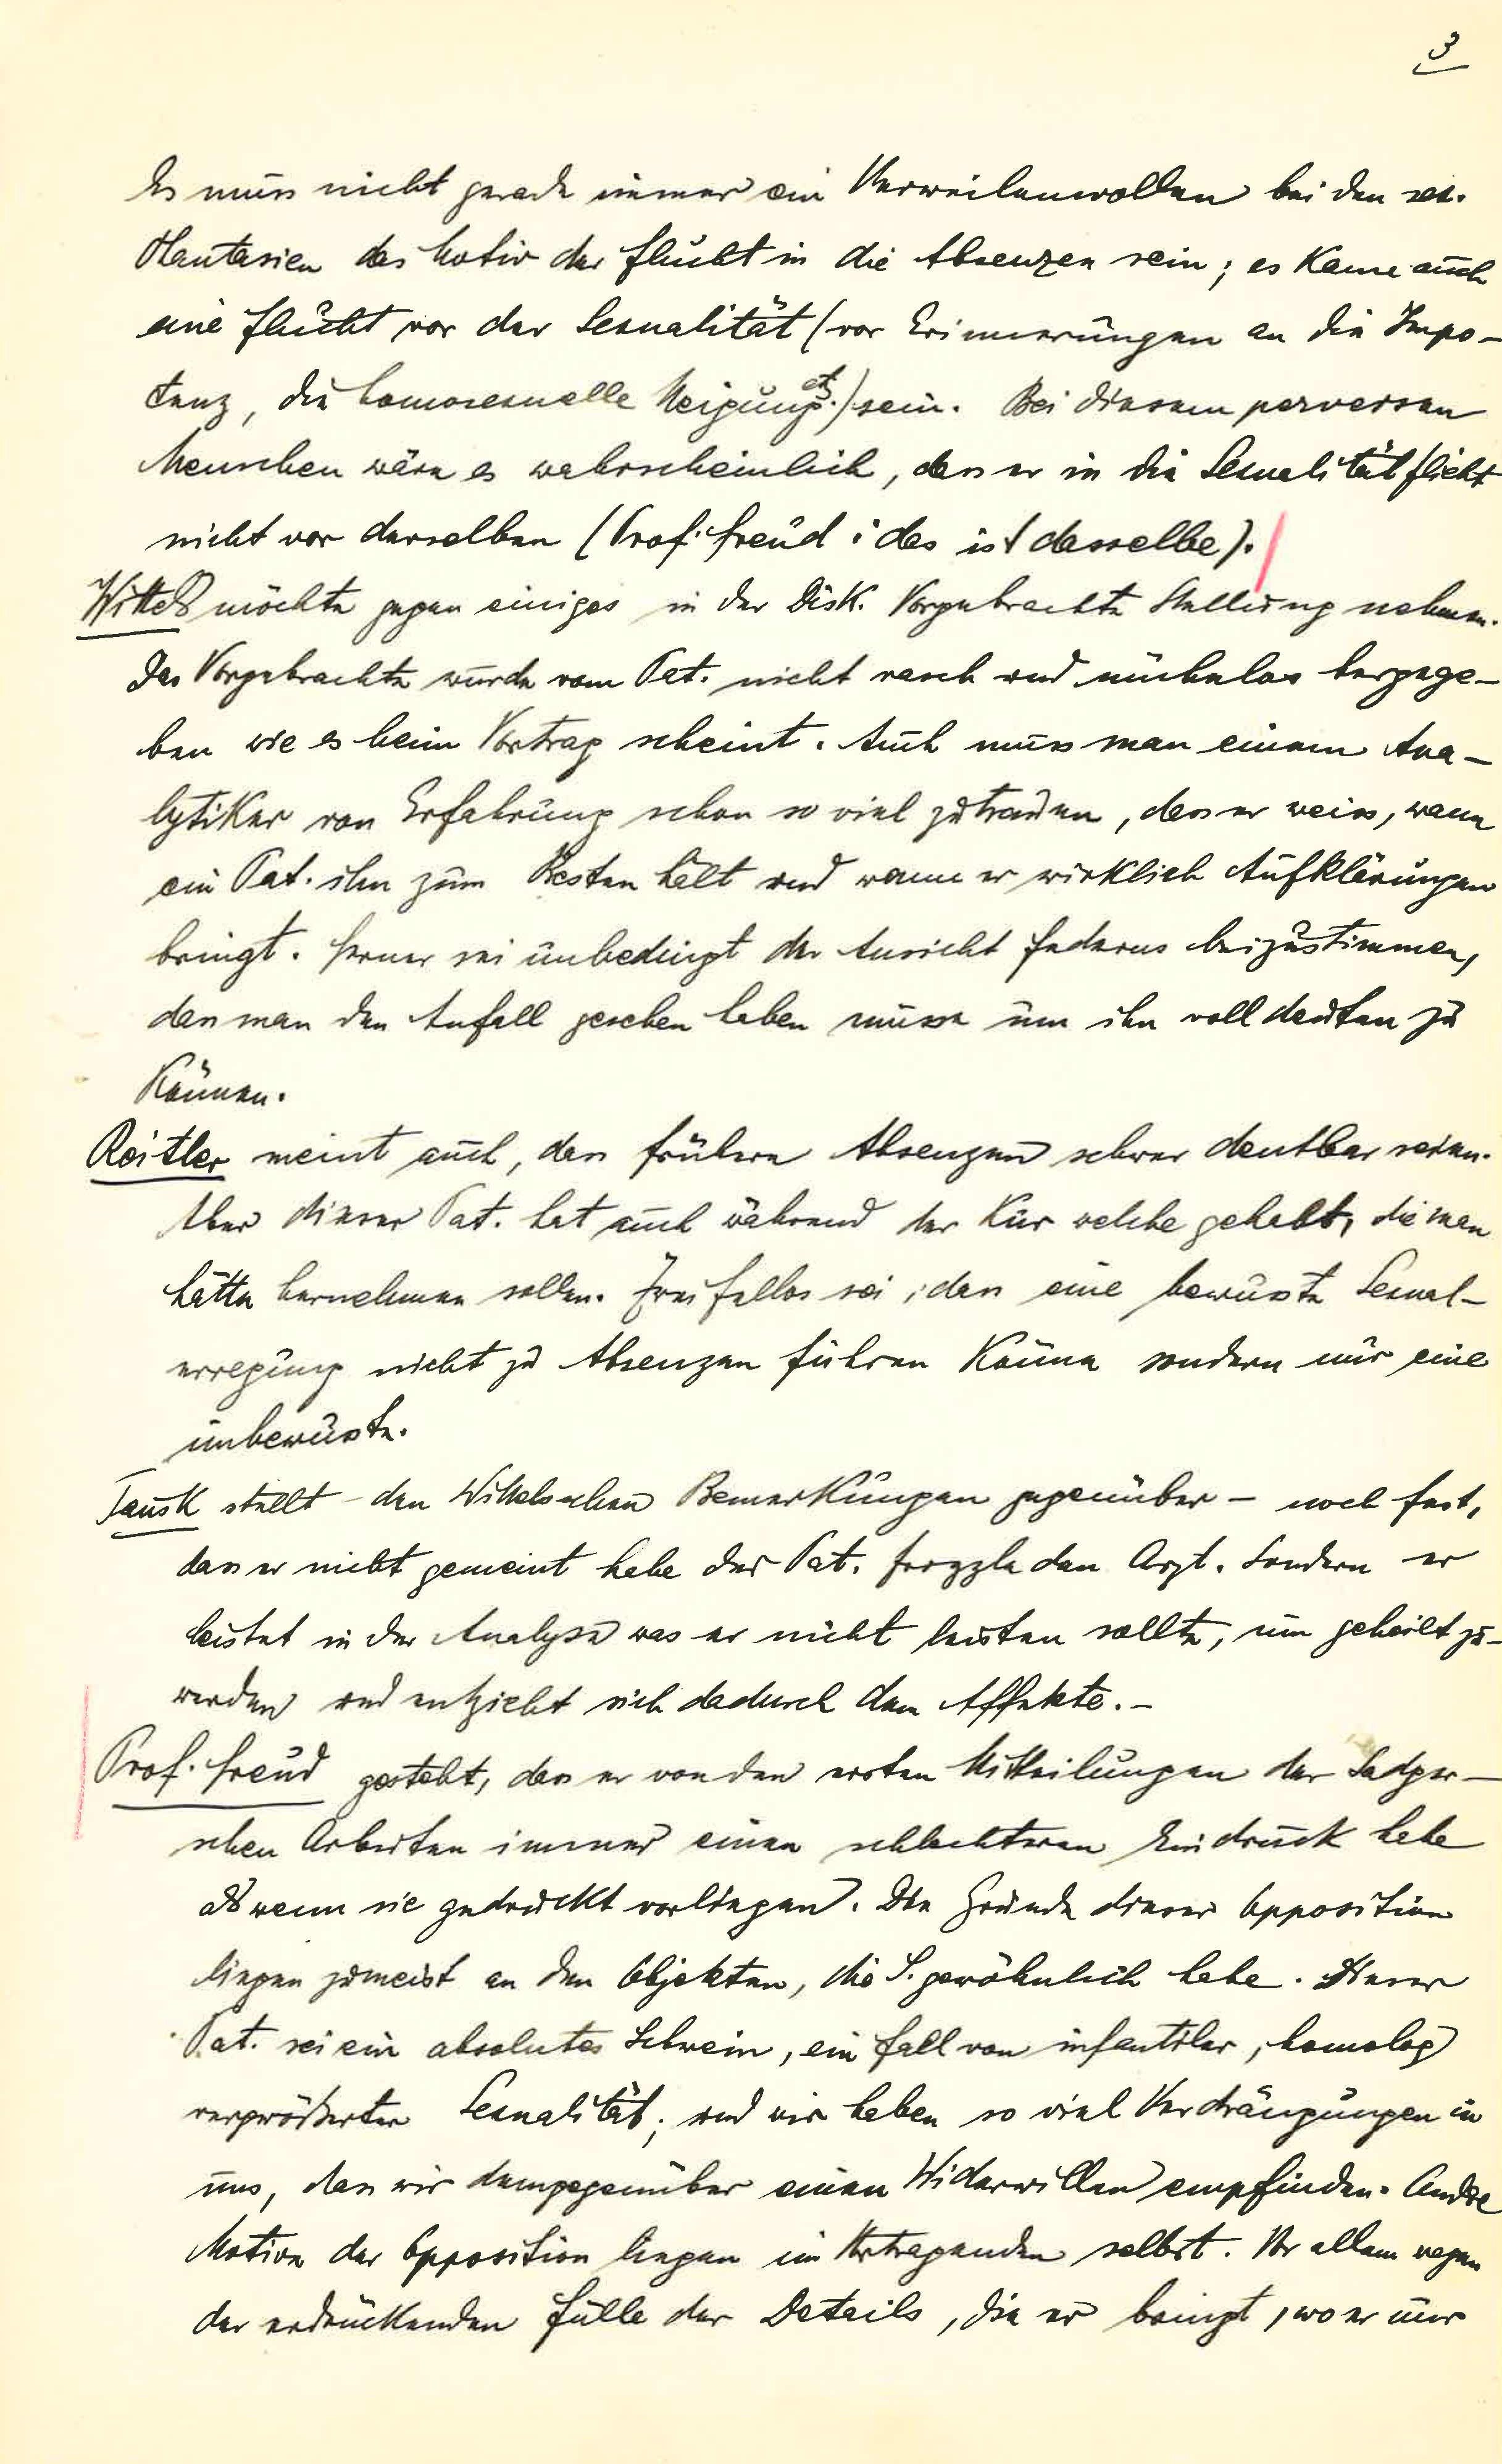 3
Es muss nicht gerade immer ein Verweilenwollen bei den sex.
Phantasien das Motiv der Flucht in die Absenzen sein; es kann auch
eine Flucht vor der Sexualität (vor Erinnerungen an die Impo-
tenz, die homosexuelle Neigung etc.) sein. Bei diesem perversen
Menschen wäre es wahrscheinlich, dass er in die Sexualität flieht
nicht vor derselben (Prof. Freud: das ist dasselbe).
Wittels möchte gegen einiges in der Disk. Vorgebrachte Stellung nehmen.
Das Vorgebrachte wurde vom Pat. nicht rasch und mühelos hergege-
ben wie es beim Vortrag scheint. Auch muss man einem Ana-
lytiker von Erfahrung schon so viel zutrauen, dass er weiss, wann
ein Pat. ihn zum Besten hält und wann er wirklich Aufklärungen
bringt. Ferner sei unbedingt der Ansicht Federns beizustimmen,
dass man den Anfall gesehen haben müsse um ihn voll deuten zu
können.
Reitler meint auch, dass frühere Absenzen schwer deutbar seien.
Aber dieser Pat. hat auch während der Kur welche gehabt, die man
hätte hernehmen sollen. Zweifellos sei, dass eine bewusste Sexual-
erregung nicht zu Absenzen führen könne sondern nur eine
unbewusste.
Tausk stellt – den Wittelsschen Bemerkungen gegenüber – noch fest,
dass er nicht gemeint habe der Pat. frozzle den Arzt. Sondern er
leistet in der Analyse was er nicht leisten sollte, um geheilt zu-
werden und entzieht sich dadurch dem Affekte. –
Prof. Freud gesteht, dass er von den ersten Mitteilungen der Sadger-
schen Arbeiten immer einen schlechteren Eindruck habe
als wenn sie gedruckt vorliegen. Die Gründe dieser Opposition
liegen zumeist an den Objekten, die S. gewöhnlich habe. Dieser
Pat. sei ein absolutes Schwein, ein Fall von infantiler, homolog
vergrößerter Sexualität; und wir haben so viel Verdrängungen in
uns, dass wir demgegenüber einen Widerwillen empfinden. Andre
Motive der Opposition liegen im Vortragenden selbst. Vor allem wegen
der erdrückenden Fülle der Details, die er bringt, wo er nur